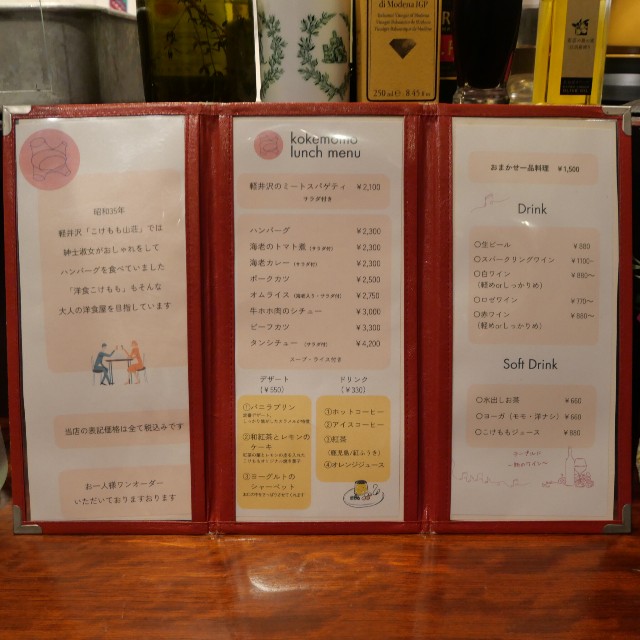 di Modena IGP
250 ml ℮ 8.45 fl
昭和35年
軽井沢「こけもも山荘」では
紳士淑女がおしゃれをして
ハンバーグを食べていました
「洋食こけもも」もそんな
大人の洋食屋を目指しています
当店の表記価格は全て税込みです
お一人様ワンオーダー
いただいておりますおります
kokemomo
lunch menu
軽井沢のミートスパゲティ ¥2,100
サラダ付き
ハンバーグ ¥2,300
海老のトマト煮 (サラダ付) ¥2,300
海老カレー (サラダ付) ¥2,300
ポークカツ ¥2,500
オムライス (海老入り・サラダ付) ¥2,750
牛ホホ肉のシチュー ¥3,000
ビーフカツ ¥3,300
タンシチュー (サラダ付) ¥4,200
スープ・ライス付き
デザート
(¥550)
①バニラプリン
②和紅茶とレモンの
ケーキ
③ヨーグルトの
シャーベット
ドリンク
(¥330)
①ホットコーヒー
②アイスコーヒー
③紅茶
(鹿児島/紅ふうき)
④オレンジジュース
おまかせ一品料理 ¥1,500
Drink
○生ビール ¥880
○スパークリングワイン ¥1100~
○白ワイン ¥880~
(軽めorしっかりめ)
○ロゼワイン ¥770~
○赤ワイン ¥880~
(軽めorしっかりめ)
Soft Drink
○水出しお茶 ¥660
○ヨーガ (モモ・洋ナシ) ¥660
○こけももジュース ¥880